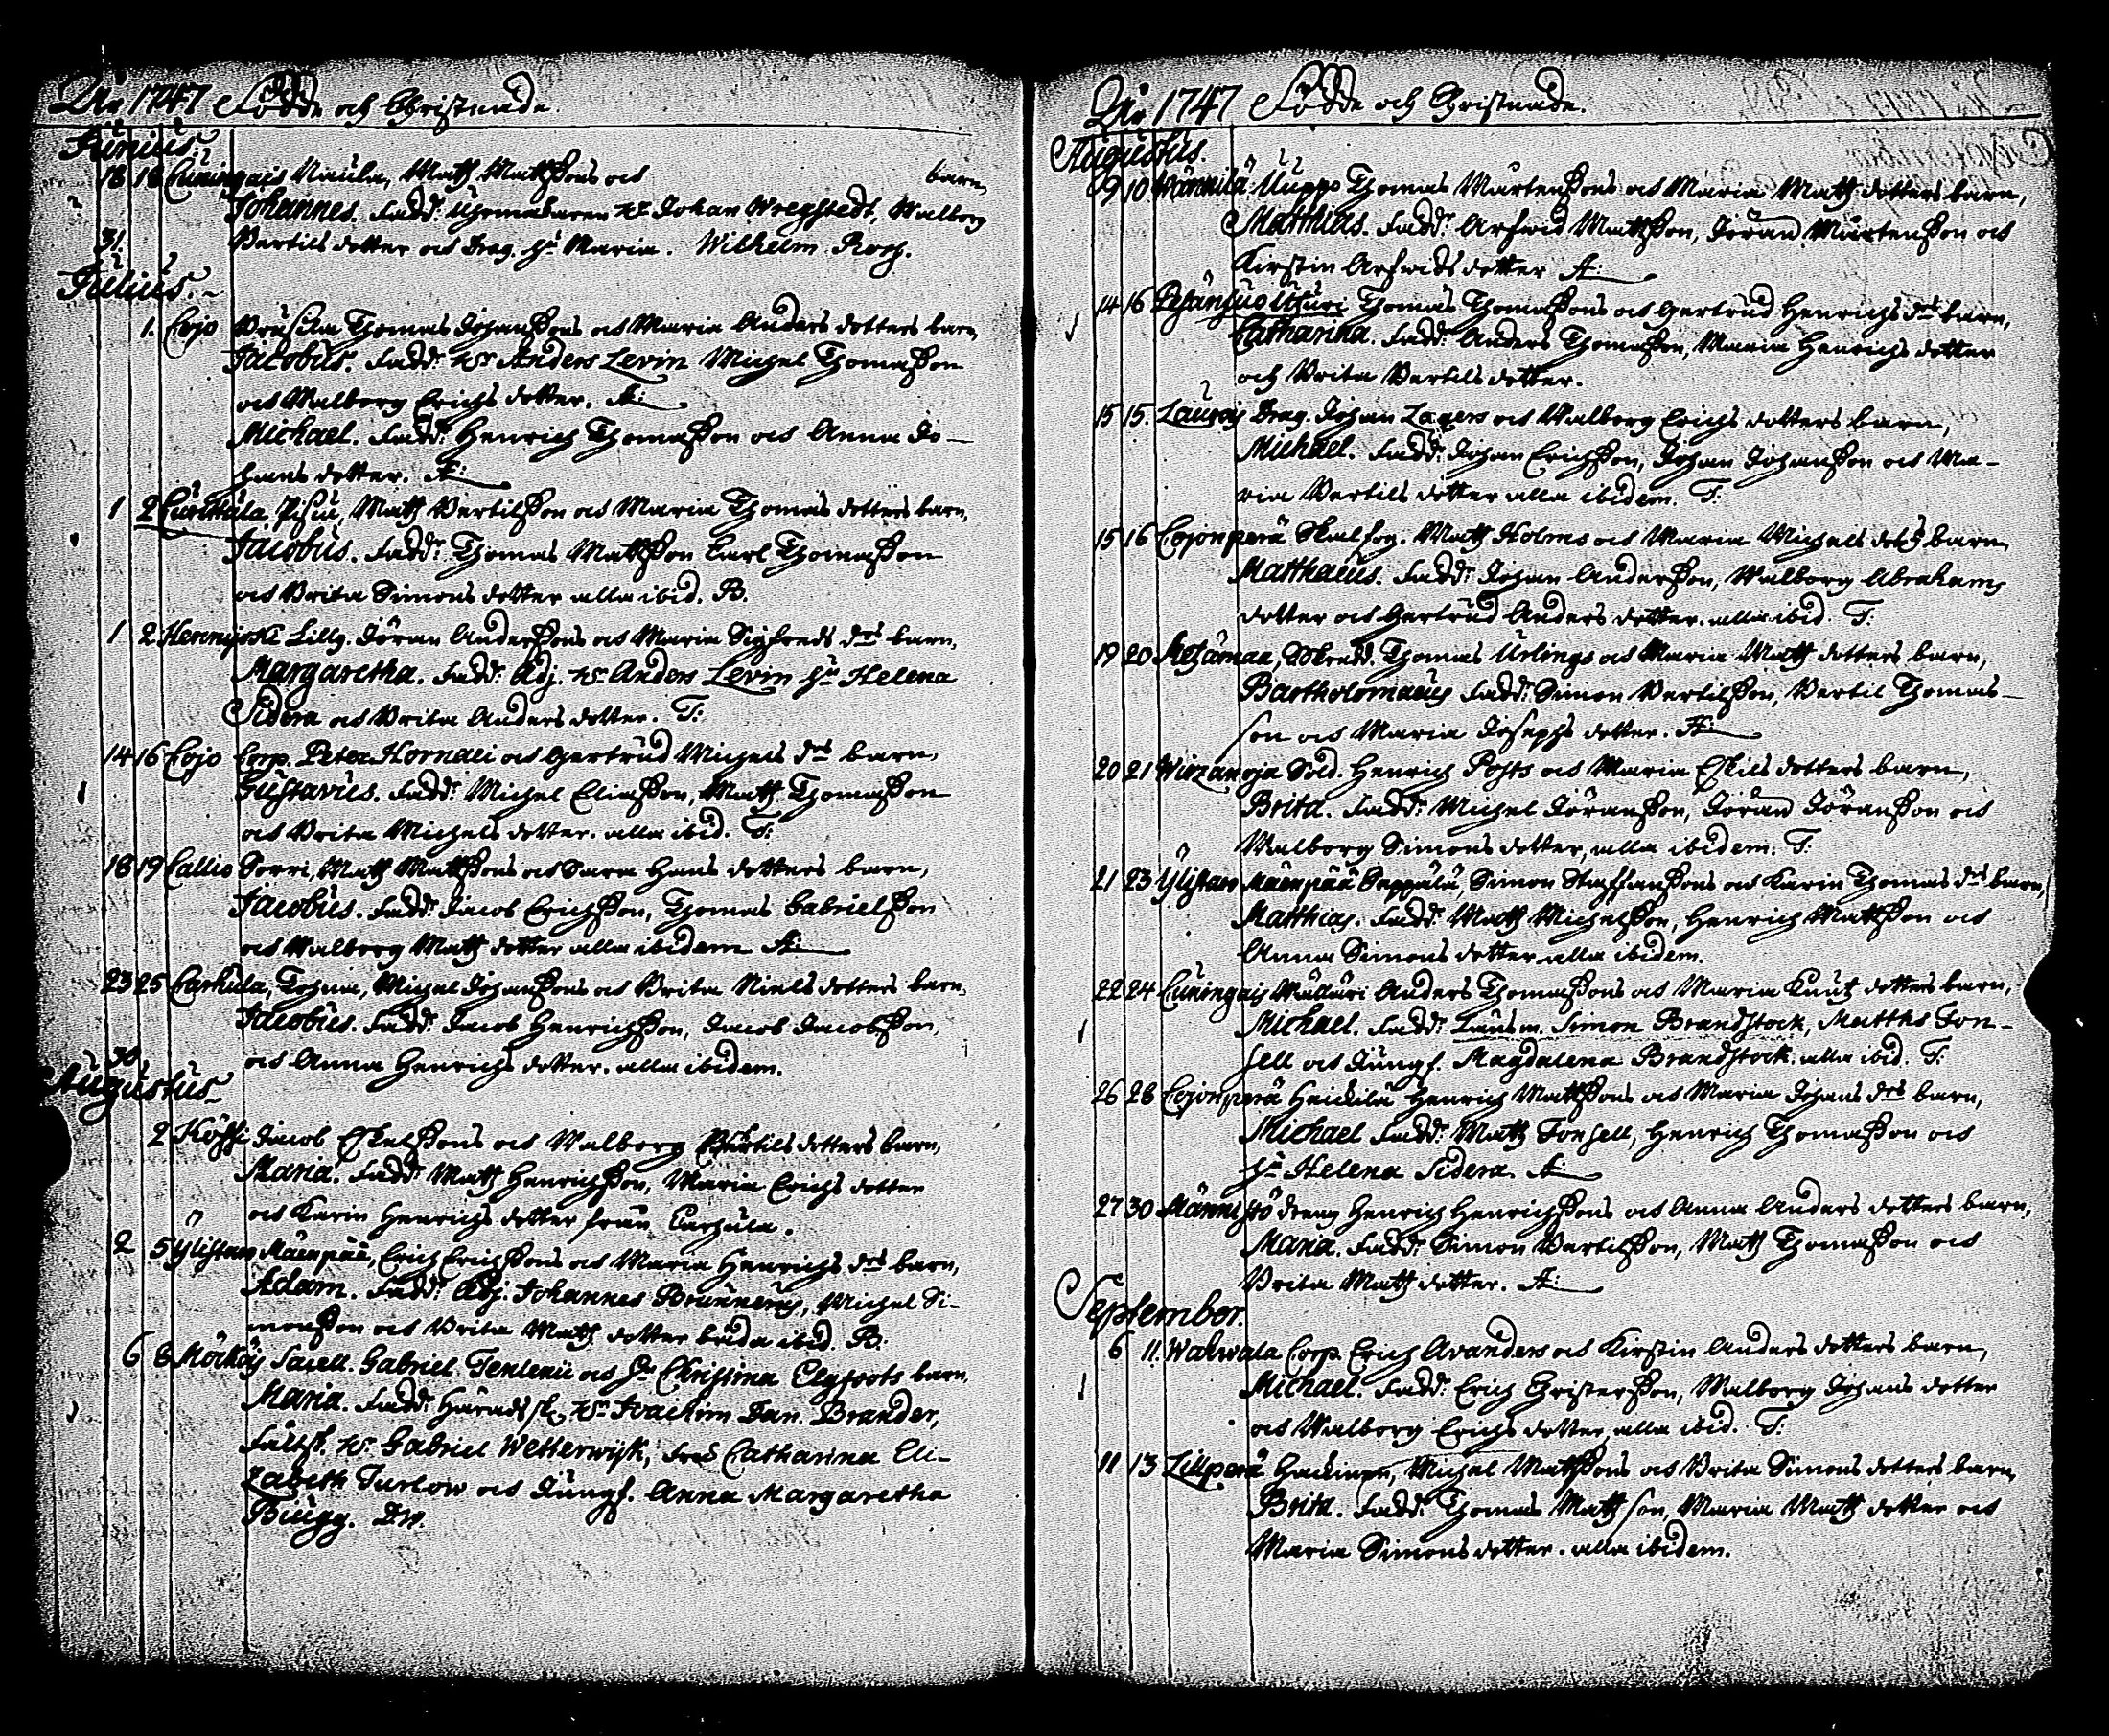 År 1747 Födde och Christnade.
Junius
18 18 Cuningais Naula, Matz Matzsons och barn,
Johannes. Fadd. Hr Johan Wregstedt, Walborg
31. Bertils dotter och Maria. Wilhelm
Julius.
1. Cojo Thomas Johanssons och Maria Anders dotters barn,
Jacobus. Fadd: Hr Anders Levin Michel Thomasson
och Walborg Erichs dotter. A:
Michael. Fadd: Henrich Thomasson och Anna Jo-
hans dotter. A:
1 2 Matz Bertilsson och Maria Thomas dotters barn,
Jacobus. Fadd: Thomas Matzson Carl Thomasson
och Brita Simons dotter alla ibid. B.
1 2 Lillg. Jöran Anderssons och Maria Sigfreds drs barn,
Margaretha. Fadd: Adj. Hr Anders Levin Hu Helena
Sidera och Brita Anders dotter. T:
14 16 Cojo Corp. Peter Kornali och Gertrud Michels drs barn,
Gustavus. Fadd: Michel Eliasson, Matz Thomasson
och Brita Michels dotter. alla ibid. T:
18 19 Callio Sorri, Matz Matzsons och Sara Hans dotters barn,
Jacobus. Fadd: Jacob Erichsson, Thomas Gabrielsson
och Walborg Matz dotter alla ibidem A:
23 25 Carhula, Michel Johanssons och Brita Niels dotters barn,
Jacobus. Fadd: Jacob Henrichsson, Jacob Jacobsson,
30 och Anna Henrichs dotter. alla ibidem.
Augustus
2 Jacob och Walborg Bertils dotters barn,
Maria. Fadd: Matz Henrichsson, Maria Erichs dotter
och Karin Henrichs dotter från Carhula.
2 5 Ylistaro Mäenpää, Erich Erichssons och Maria Henrichs drs barn,
Adam. Fadd: Adj. Johannes Brunnerus, Michel Si-
monsson och Brita Matz dotter bеda ibid. B:
6 8 Sacell. Gabriel Fenlenii och Christina Elgfoots barn,
Maria. Fadd: Härads Hr Joachim Dan. Brander,
Hr Gabriel Wetterwijk, Catharina Eli-
zabeth Turlow och Jungf. Anna Margaretha
Biugg. Dw.
År 1747 Födde och Christnade.
Augustus.
9 10 Männilä Uuppo Thomas Mårtenssons och Maria Matz dotters barn,
Matthias. Fadd: Arfwid Matzson, Jöran Mårtensson och
Kirstin Arfwids dotter A:
14 16 Thomas Thomassons och Gertrud Henrichs drs barn,
Catharina. Fadd: Anders Thomasson, Maria Henrichs dotter
och Brita Bertils dotter.
15 15. Drag. Johan Lagers och Walborg Erichs dotters barn,
Michael. Fadd: Johan Erichsson, Johan Johansson och Ma-
ria Bertils dotter alla ibidem. T:
15 16 Cojonperä Matz Holms och Maria Michels barn
Matthaeus. Fadd: Johan Andersson, Walborg Abrahams
dotter och Gertrud Anders dotter. alla ibid. T:
19 20 Thomas Urlings och Maria Matz dotters barn,
Bartholomaeus Fadd: Simon Bertilsson, Bertil Thomas-
son och Maria Josephs dotter. A:
20 21 Wirzanoja Sold. Henrich Posts och Maria Eskils dotters barn,
Brita. Fadd: Michel Jöransson, Jöran Jöransson och
Walborg Simons dotter, alla ibidem. T:
21 23 Ylistaro Mäenpää Simon Staffanssons och Karin Thomas drs barn,
Matthias. Fadd: Matz Michelsson, Henrich Matzson och
Anna Simons dotter alla ibidem.
22 24 Cuningais Anders Thomassons och Maria Knuts dotters barn,
Michael. Fadd: Simon Brandstock, Matths Fon-
sell och Jungf. Magdalena Brandstock alla ibid. T:
26 28 Cojonperä Heickilä Henrich Matzsons och Maria Johans drs barn,
Michael Fadd: Matz Fonsell, Henrich Thomasson och
Hu Helena Sidera. A:
27 30 dreng Henrich Henrichssons och Anna Anders dotters barn,
Maria. Fadd: Simon Bertilsson, Matz Thomasson och
Brita Matz dotter. A:
September.
6 11. Wahwala Corp. Erich Avanders och Kirstin Anders dotters barn,
Michael. Fadd: Erich Christersson, Walborg Johans dotter
och Walborg Erichs dotter, alla ibid. T:
11 13 Zillperä Michel Matzsons och Brita Simons dotters barn,
Brita. Fadd: Thomas Matz son, Maria Matz dotter och
Maria Simons dotter. alla ibidem.